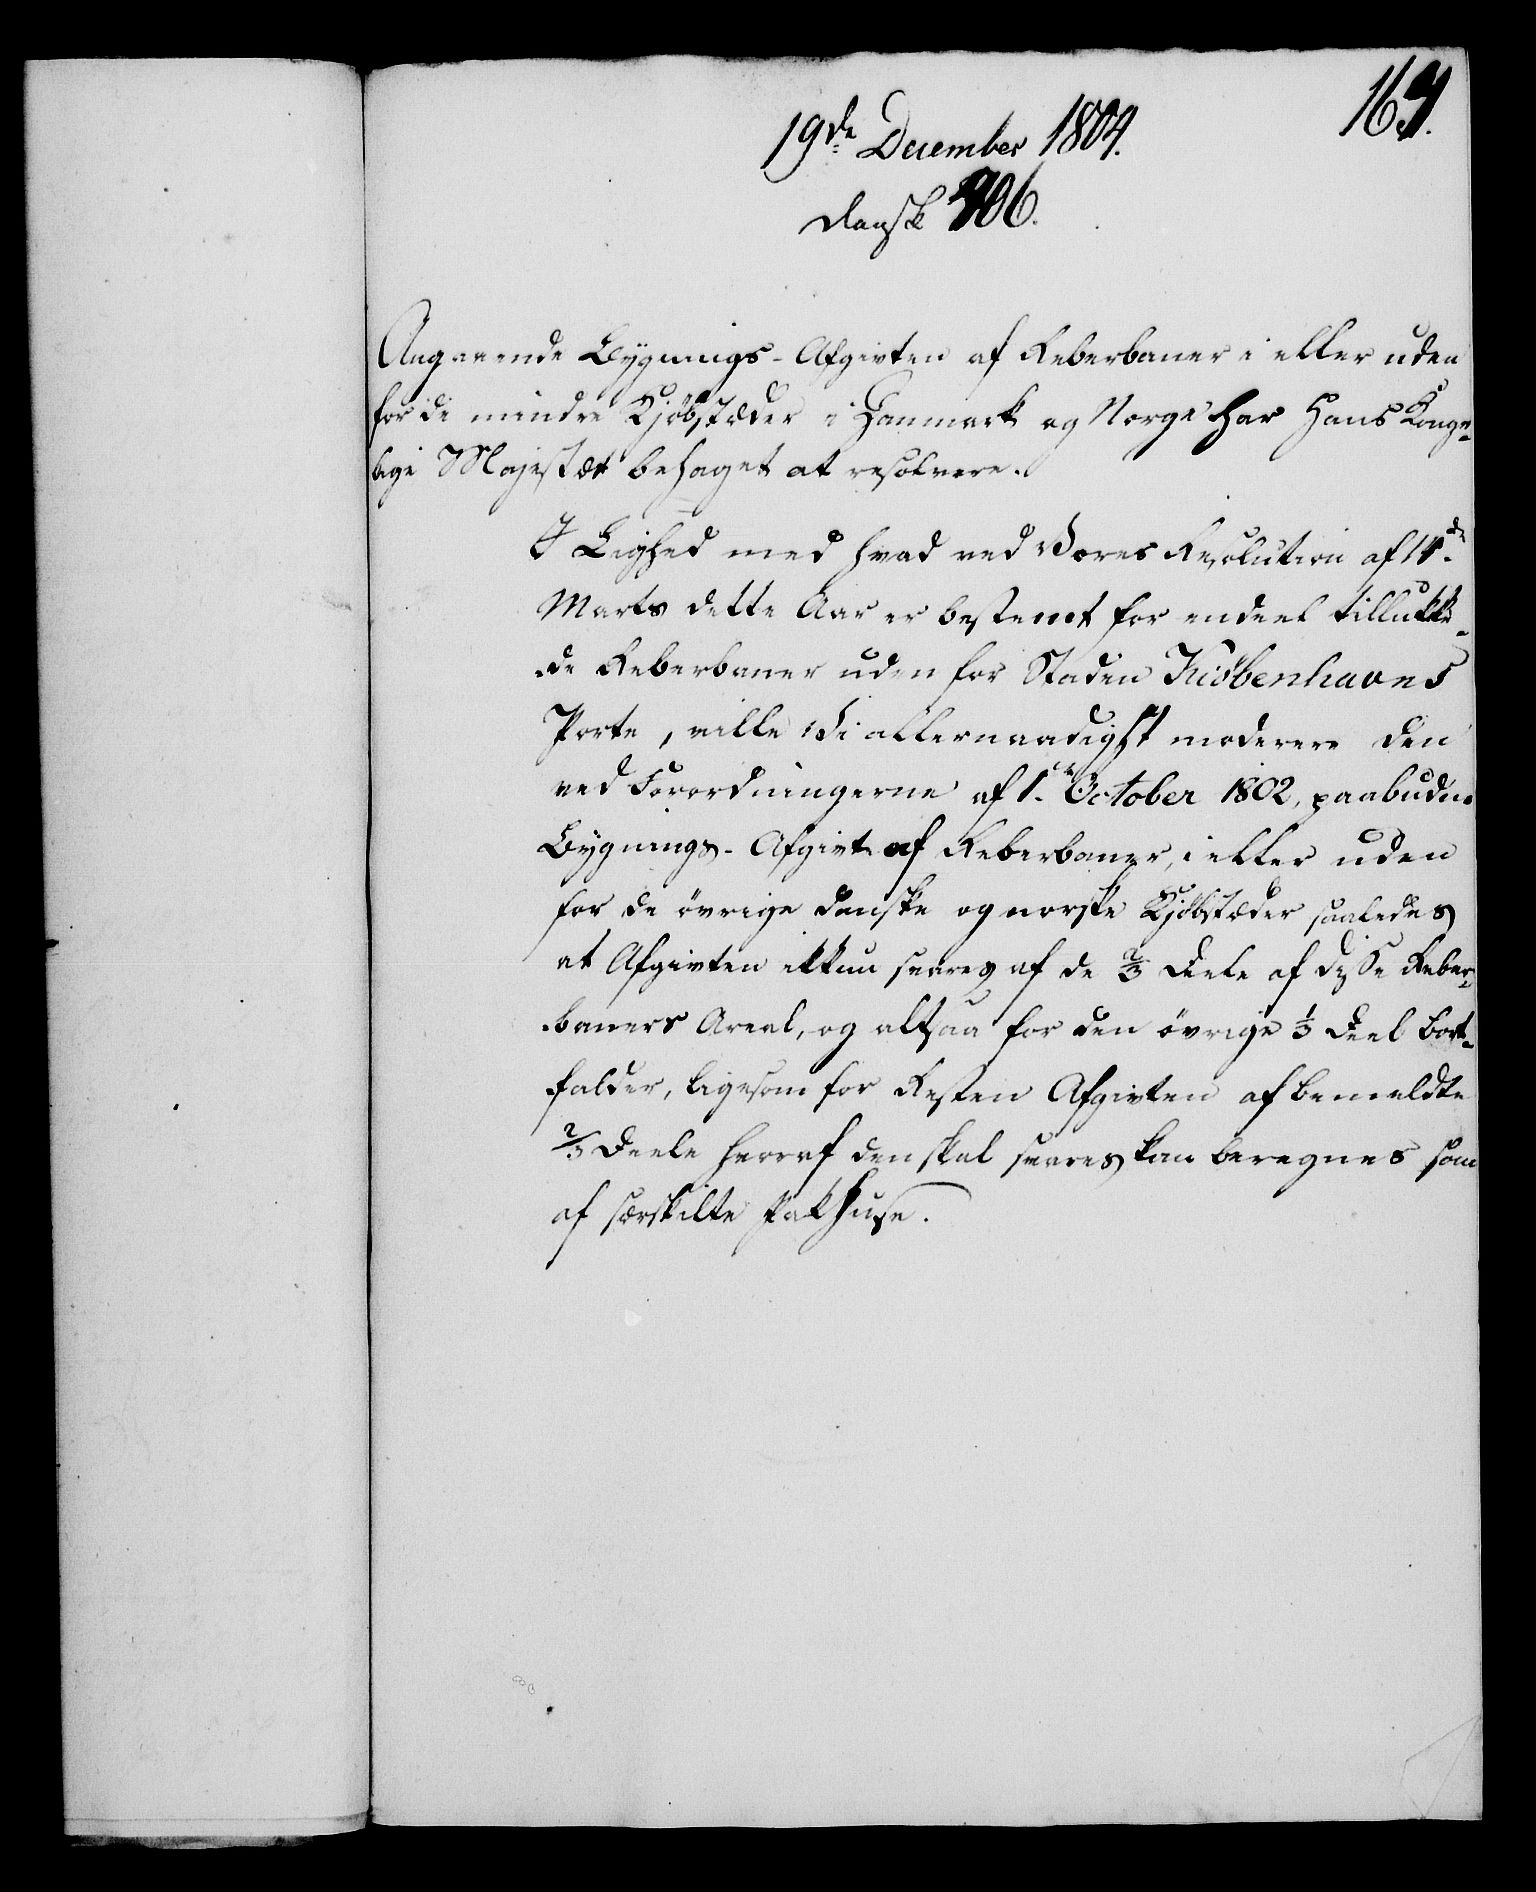 164.
19de December 1804.
Dansk 906.
Angaaende Bygnings-Afgivten af Reberbaner i eller uden
for de mindre Kjöbstæder i Danmark og Norge har Hans Konge-
lige Majestæt behaget at resolvere.
I Liighed med hvad ved Vores Resolution af 14de
Marts dette Aar er bestemt for endeel tillukke-
de Reberbaner uden for Staden Kiöbenhavns
Porte, ville Vi allernaadigst moderere den
ved Forordningerne af 1. October 1802, paabudne
Bygnings-Afgivt af Reberbaner, i eller uden
for de övrige danske og norske Kjöbstæder saaledes
at Afgivten ikkun svares af de 2/3 Deele af disse Reber-
baners Areal, og altsaa for den övrige 1/3 Deel bort-
falder, ligesom for Resten Afgivten af bemeldte
2/3 Deele hvoraf den skal svares kan beregnes som
af særskilte Pakhuse.